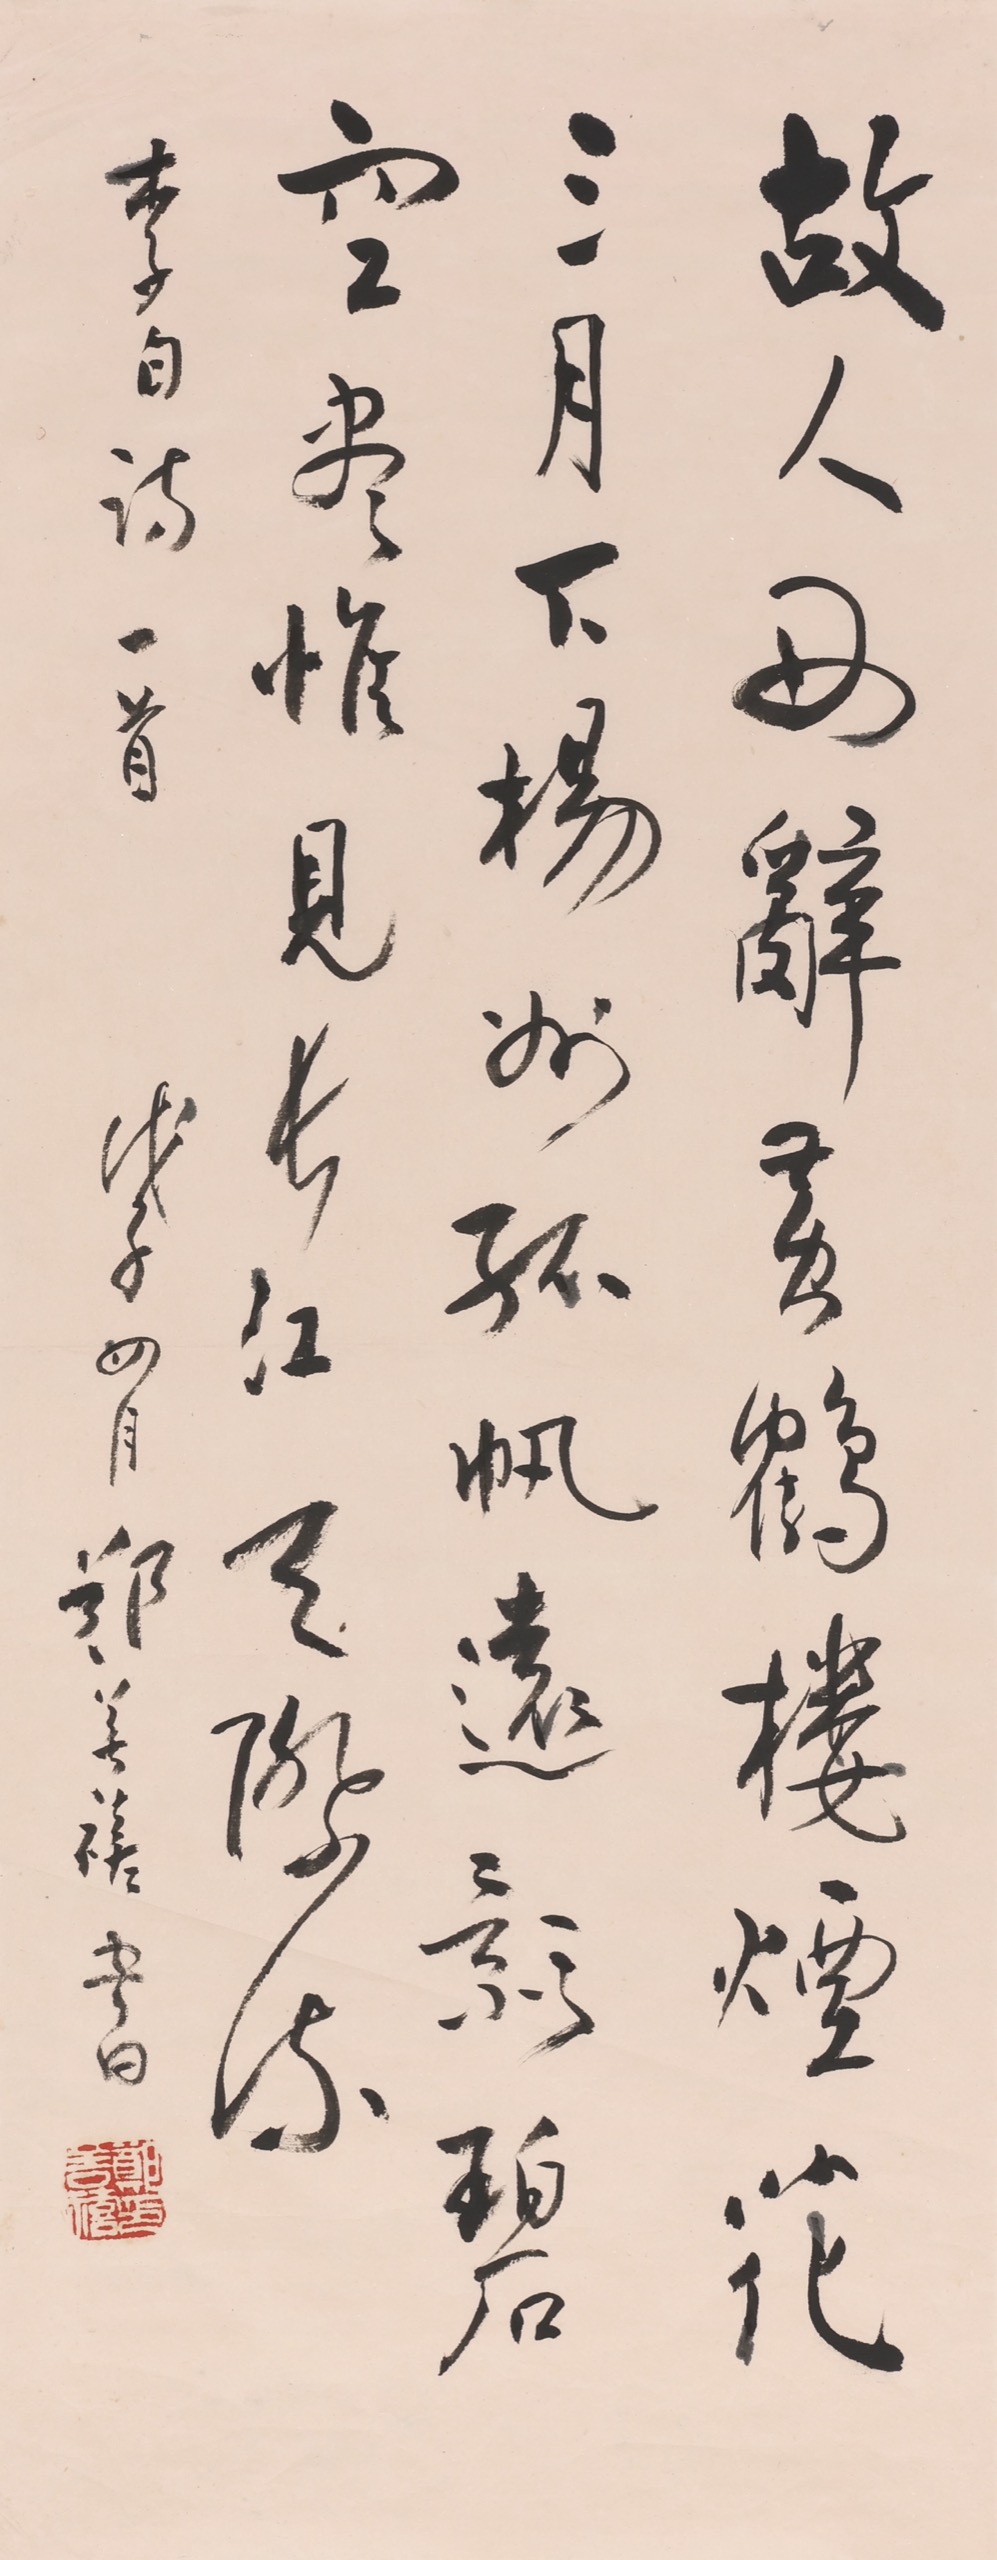 故人西辭黃鶴樓煙花
三月下揚州孤帆遠影碧
空盡惟見長江天際流
李白詩一首 戊子四月 鄭善禧書
鄭善禧